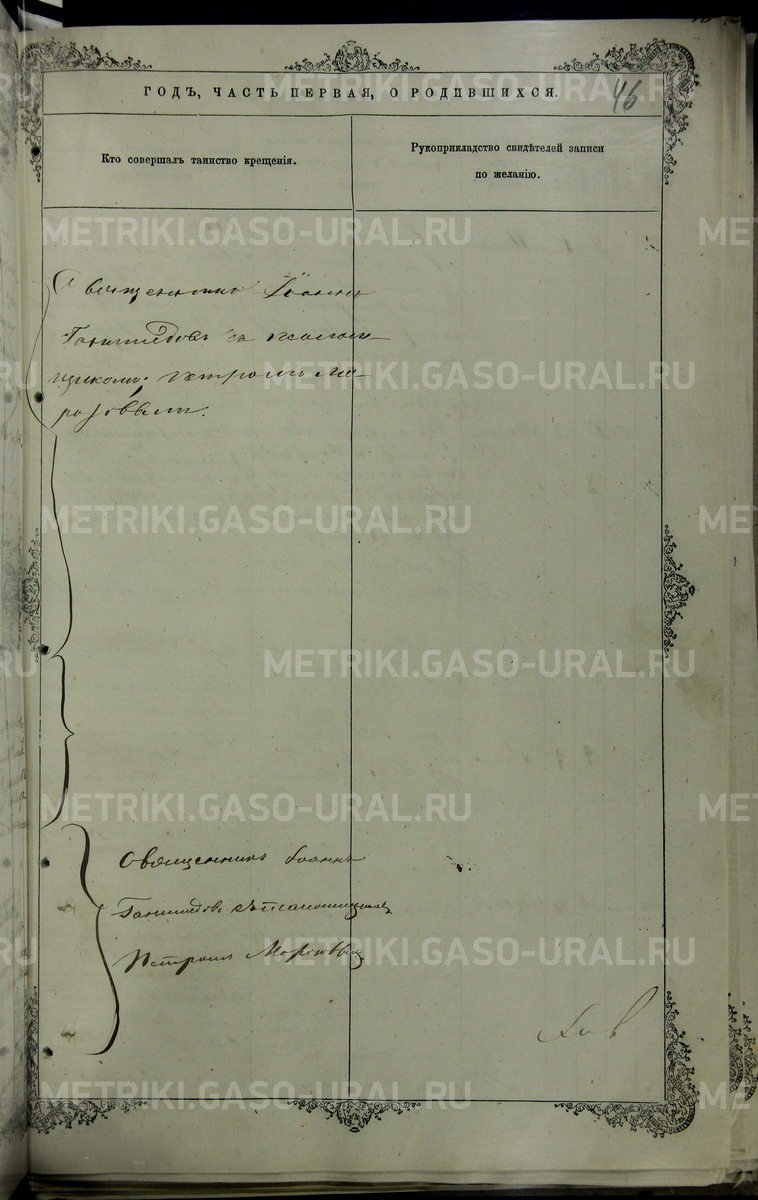 46
ГОДЪ, ЧАСТЬ ПЕРВАЯ, О РОДИВШИХСЯ.
Кто совершалъ таинство крещенія.
Рукоприкладство свидѣтелей записи
по желанію.
METRIKI.GASO-URAL.RU
Священникъ Іоаннъ
Ганимедовъ съ псалом
щикомъ Петромъ Мо-
розовымъ.
Священникъ Іоаннъ
Ганимедовъ съ псаломщикомъ
Петромъ Морозовымъ